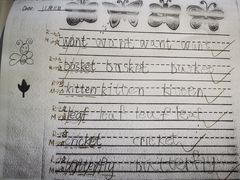 Date:
want want want want
basket basket basket
kitten kitten kitten
leaf leaf leaf leaf
cricket cricket
butterfly butterfly